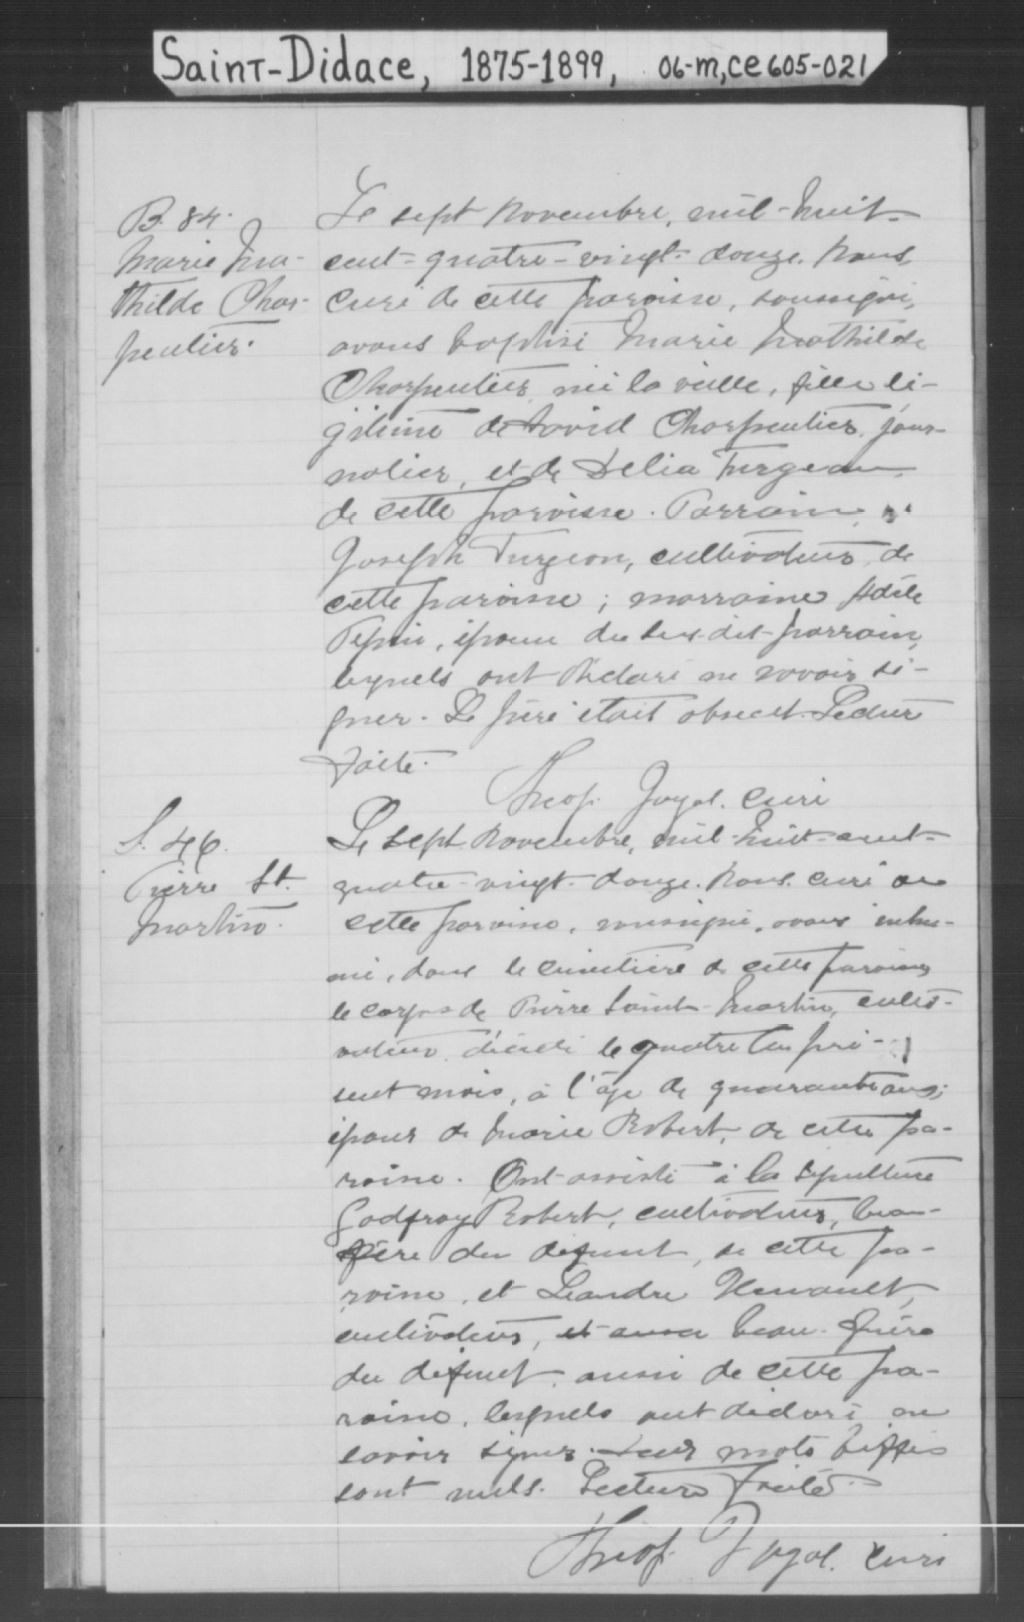 Saint-Didace, 1875-1899, 06-M,CE605-021
B. 84.
Marie Ma-
thilde Char-
pentier.
Le sept Novembre, mil-huit-
cent-quatre-vingt-douze. Nous,
curé de cette paroisse, soussigné,
avons baptisé Marie Mathilde
Charpentier, née la veille, fille lé-
gitime de David Charpentier, jour-
nalier, et de Délia Turgeon,
de cette paroisse. Parrain,
Joseph Turgeon, cultivateur, de
cette paroisse; marraine Adèle
Pepin, épouse du sus-dit parrain,
lesquels ont déclaré ne savoir si-
gner. Le père était absent. Lecture
faite.
Théop. Joyal. curé
S. 46.
Pierre St.
Martin.
Le sept Novembre, mil-huit-cent-
quatre-vingt-douze. Nous, curé de
cette paroisse, soussigné, avons inhu-
mé, dans le cimetière de cette paroisse
le corps de Pierre Saint-Martin, culti-
vateur, décédé le quatre du pré-
sent mois, à l'âge de quarante ans;
époux de Marie Robert, de cette pa-
roisse. Ont assisté à la sépulture
Godfroy Robert, cultivateur, beau-
frère du défunt, de cette pa-
roisse, et Léandre Henault,
cultivateur, et aussi beau-frère
du défunt, aussi de cette pa-
roisse, lesquels ont déclaré ne
savoir signer. Deux mots biffés
sont nuls. Lecture faite.
Théop. Joyal. curé